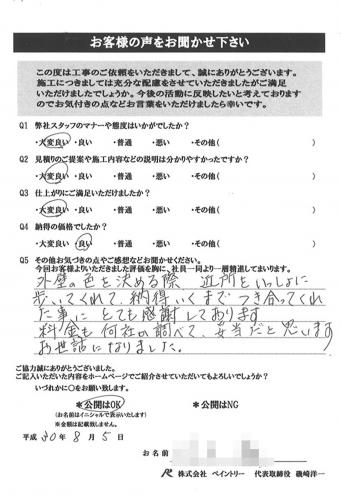 お客様の声をお聞かせ下さい
この度は工事のご依頼をいただきまして、誠にありがとうございます。
施工につきましては充分な配慮をさせていただきましたがご満足
いただけましたでしょうか。今後の活動に反映したいと考えております
のでお気付きの点などお言葉をいただけましたら幸いです。
Q1 弊社スタッフのマナーや態度はいかがでしたか?
・大変良い ・良い ・普通 ・悪い ・その他( )
Q2 見積りのご提案や施工内容などの説明は分かりやすかったですか?
・大変良い ・良い ・普通 ・悪い ・その他( )
Q3 仕上がりにご満足いただけましたか?
・大変良い ・良い ・普通 ・悪い ・その他( )
Q4 納得の価格でしたか?
・大変良い ・良い ・普通 ・悪い ・その他( )
Q5 その他お気づきの点やご感想などお聞かせください。
今回お客様よりいただきました評価を胸に、社員一同より一層精進してまいります。
外壁の色を決める際、近所をいっしょに
歩いてくれて、納得いくまでつき合ってくれ
た事に とても感謝しております
料金も何社か調べて、妥当だと思います
お世話になりました。
ご協力誠にありがとうございました。
ご記入いただいた内容をホームページでご紹介させていただいてもよろしいでしょうか?
いづれかに○をお願い致します。
*公開はOK *公開はNG
(お名前はイニシャルで表示いたします)
※金額は記載致しません。
平成 30 年 8 月 5 日
お名前
株式会社 ペイントリー 代表取締役 磯崎洋一